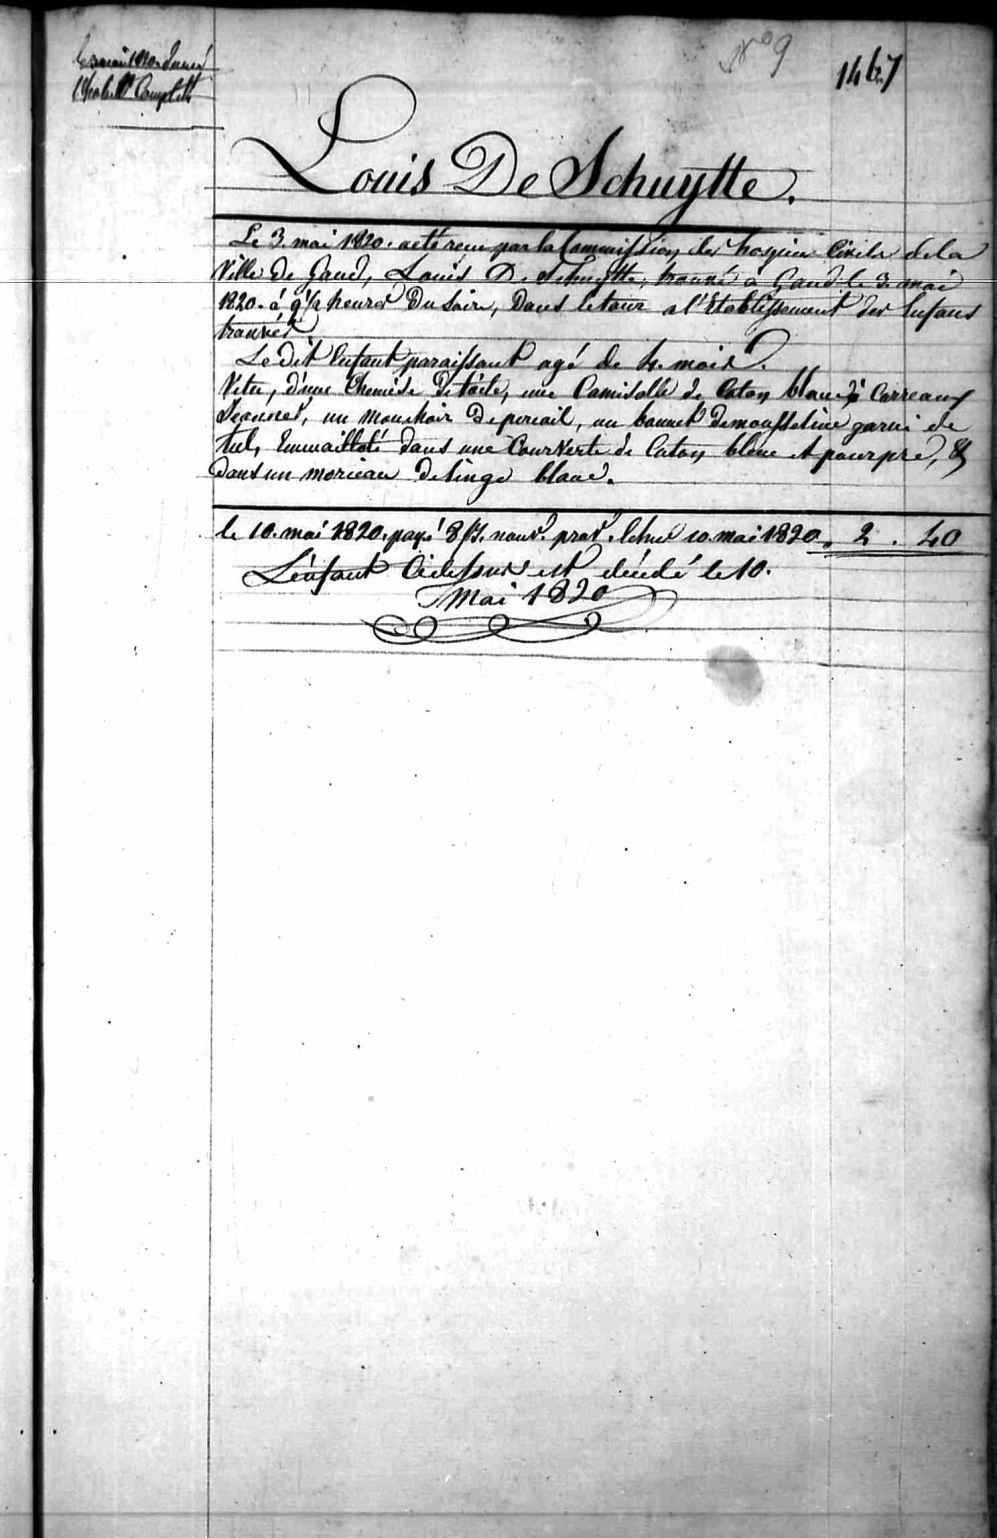 N° 9
1467
Le 3 mai 1820. donné
Complette
Louis De Schuytte.
Le 3. mai 1820. a eté recu par la Commission des hospices Civils de la
Ville de Gand, Louis De Schuytte, trouvé a Gand le 3. mai
1820. á 9 1/2 heures Du Soir, Dans le tour a l'Etablissement des Enfans
trouvés.
Le dit Enfant paraissant agé de 4. mois.
Vetu, d'une Chemise De toile, une Camisolle de Coton blanc à Carreaux
Jeaunes, un mouchoir De percail, un bonnet De mousseline garni de
tul, Emmailloté dans une Couverte de Coton bleue et pourpre, &
dans un morceau De linge blanc.
le 10. mai 1820. payé 8 f nouv. prov. echu 10. mai 1820. 2 . 40
L'enfant Ci dessus est décédé le 10.
Mai 1820